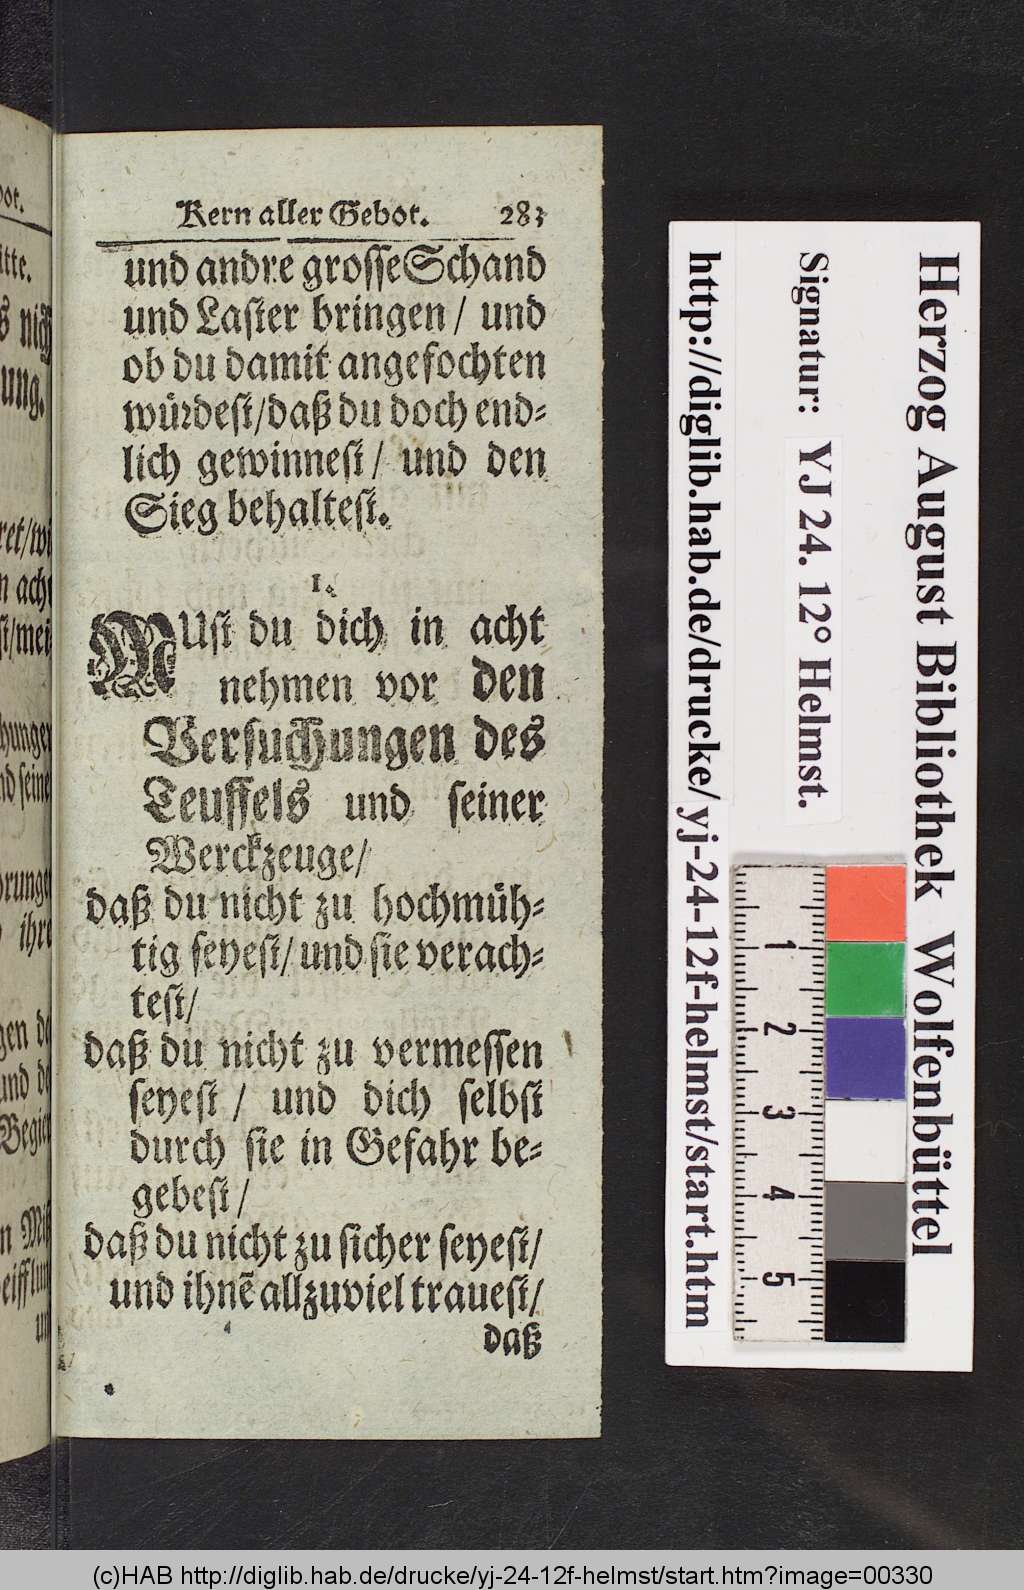 Kern aller Gebot. 283
und andre grosse Schand
und Laster bringen / und
ob du damit angefochten
würdest/daß du doch end-
lich gewinnest / und den
Sieg behaltest.
1.
MUst du dich in acht
nehmen vor den
Versuchungen des
Teuffels und seiner
Werckzeuge/
daß du nicht zu hochmüh-
tig seyest/und sie verach-
test/
daß du nicht zu vermessen
seyest / und dich selbst
durch sie in Gefahr be-
gebest /
daß du nicht zu sicher seyest/
und ihnẽ allzuviel trauest/
daß
Herzog August Bibliothek Wolfenbüttel
Signatur: YJ 24. 12° Helmst.
http://diglib.hab.de/drucke/yj-24-12f-helmst/start.htm
1
2
3
4
5
(c)HAB http://diglib.hab.de/drucke/yj-24-12f-helmst/start.htm?image=00330